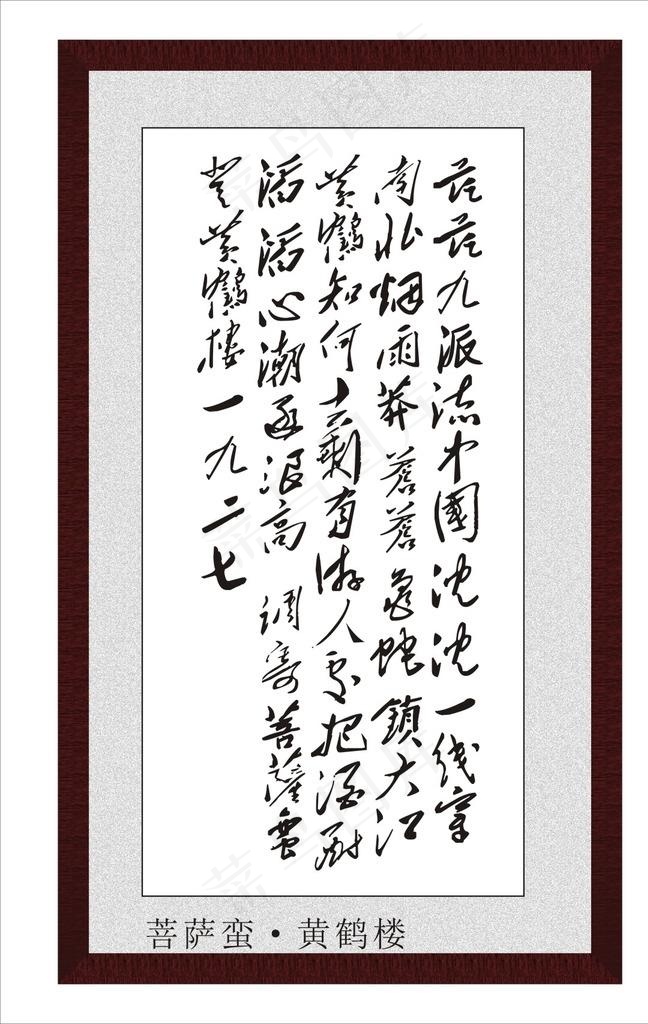 茫茫九派流中國沈沈一线穿
南北烟雨莽蒼蒼龜蛇鎖大江
黄鶴知何去剩有游人处把酒酹
滔滔心潮逐浪高 调寄菩薩蛮
登黄鶴楼一九二七
菩萨蛮·黄鹤楼
菜鸟图库